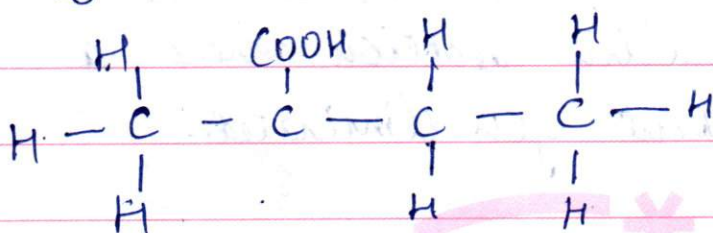 H COOH H H
H - C - C - C - C - H
H H H